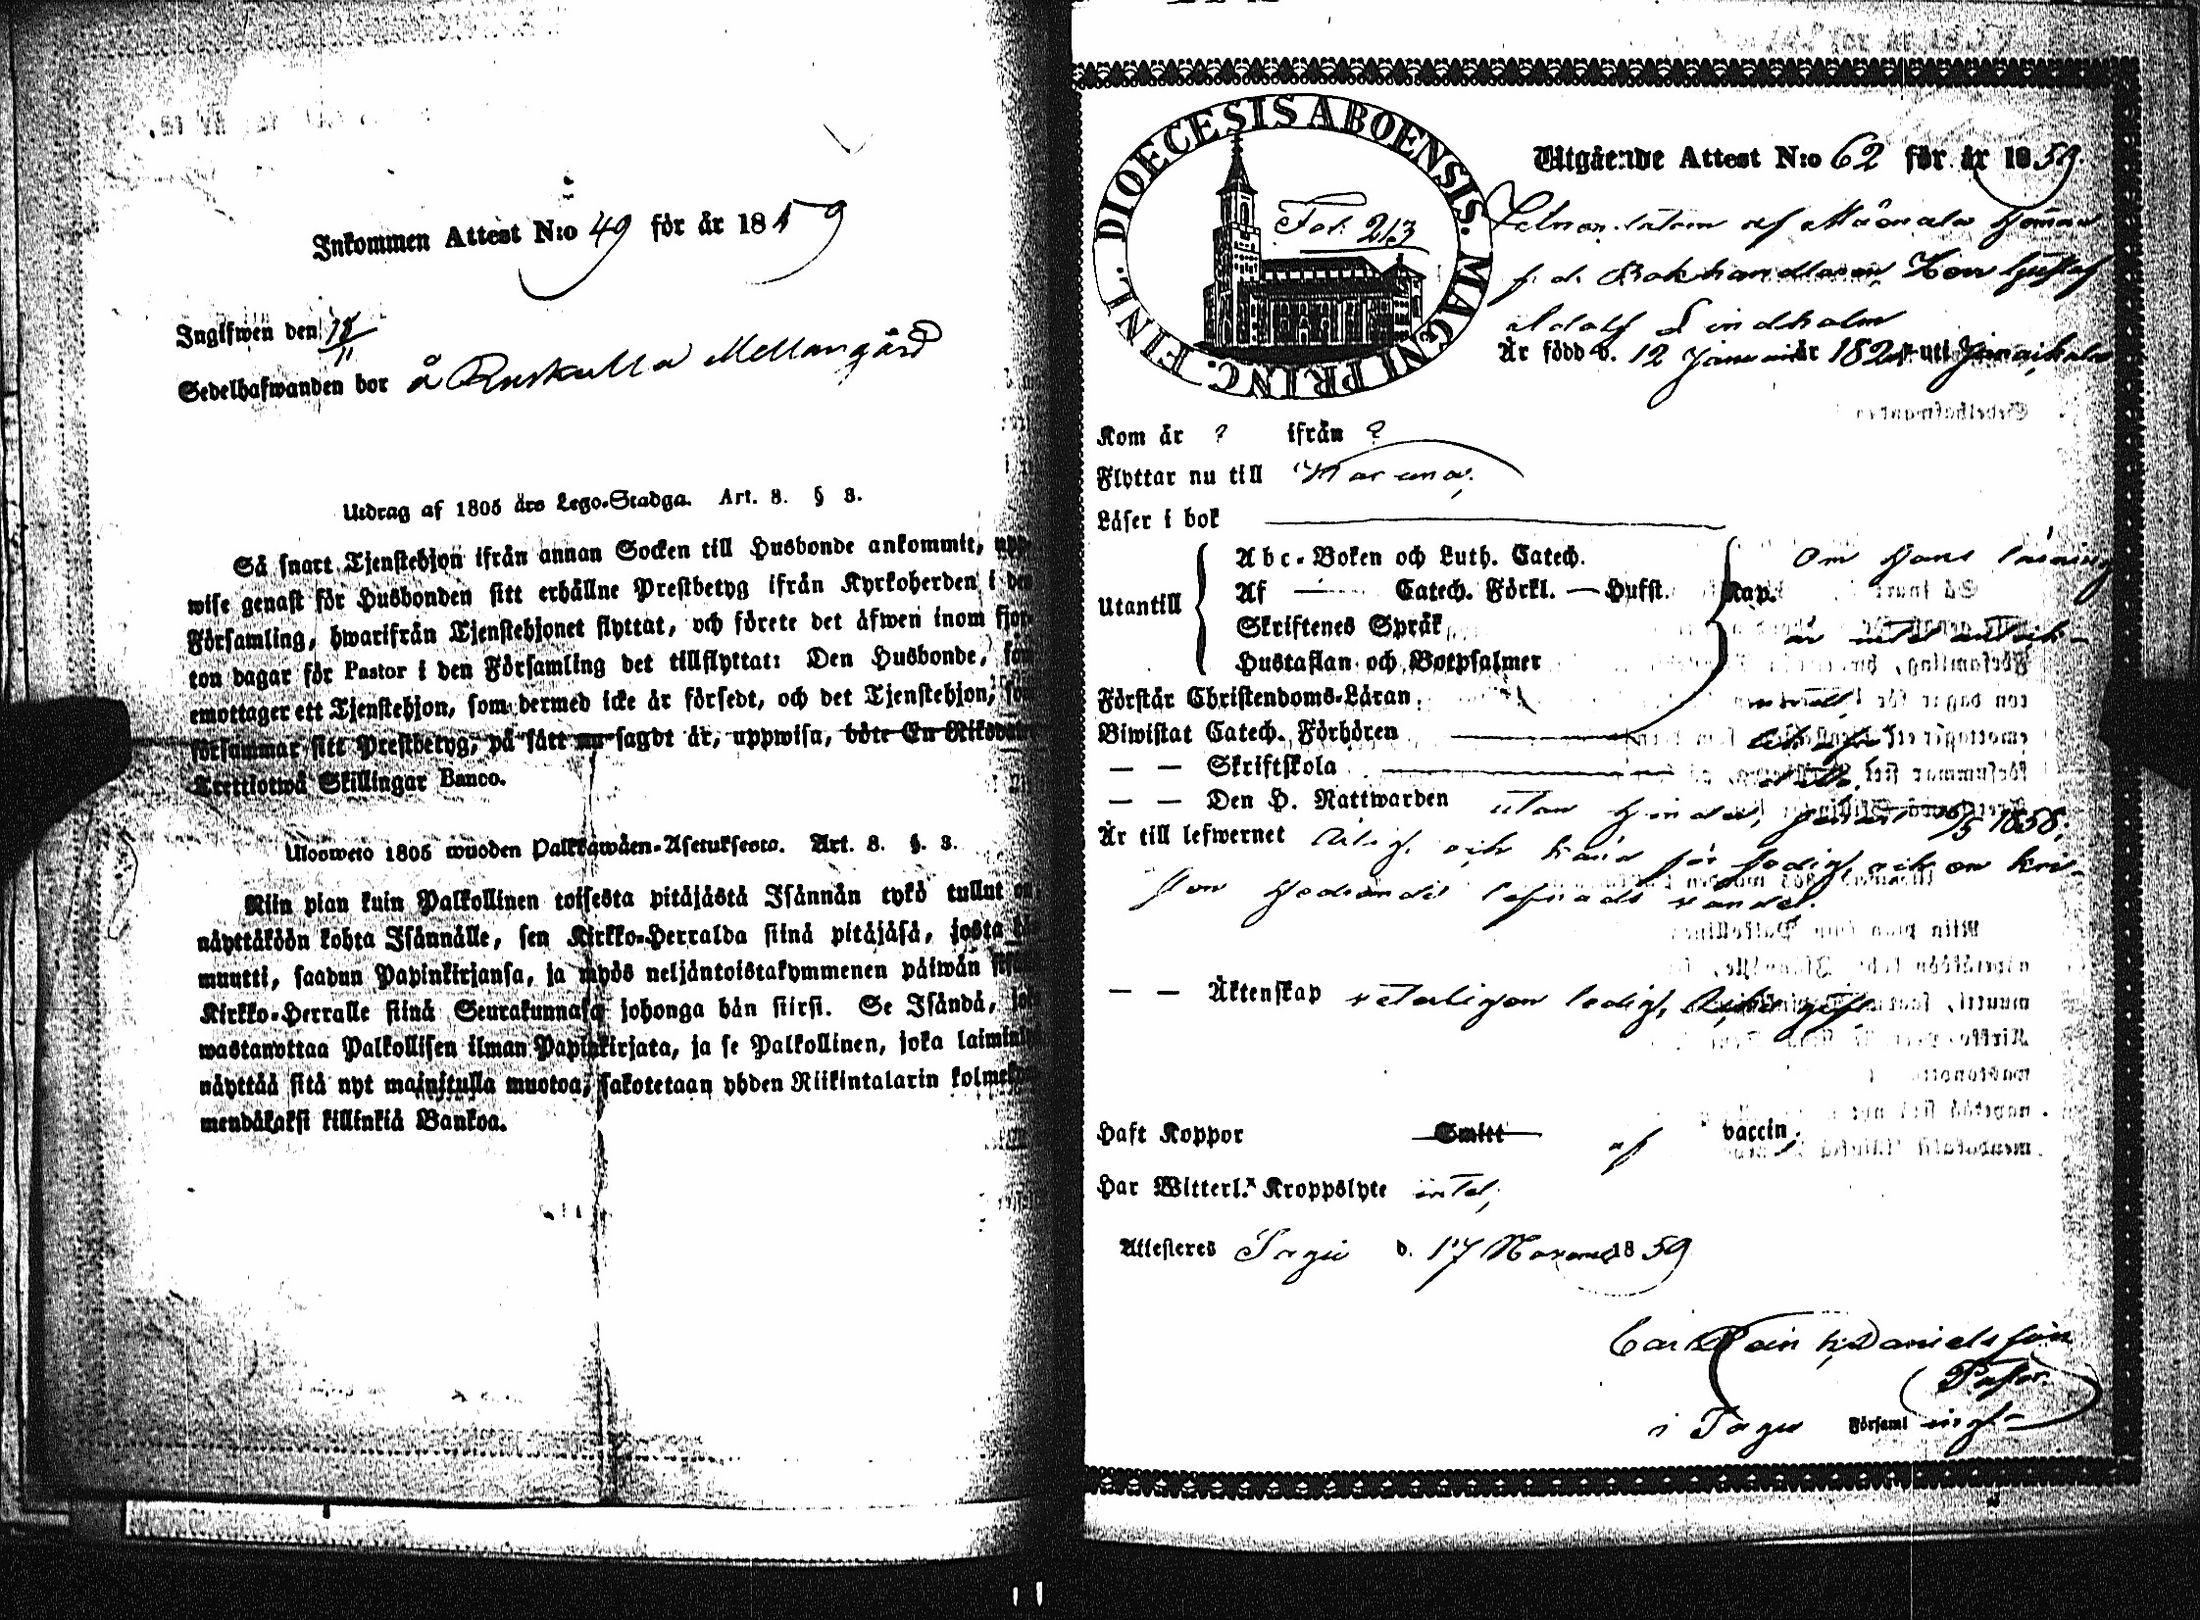 Inkommen Attest N:o 49 för år 1859
Ingifwen den 18/11
Sedelhafwanden bor å Ruskulla Mellangård
Utdrag af 1805 års Lego-Stadga. Art. 8. § 3.
Så snart Tjenstehjon ifrån annan Socken till Husbonde ankommit, upp-
wise genast för Husbonden sitt erhållne Prestbetyg ifrån Kyrkoherden i den
Församling, hwarifrån Tjenstehjonet flyttat, och förete det äfwen inom fjor-
ton dagar för Pastor i den Församling det tillflyttat: Den Husbonde, som
emottager ett Tjenstehjon, som dermed icke är försedt, och det Tjenstehjon, som
försummar sitt Prestbetyg, på sätt nu sagdt är, uppwisa, böte En Riksdaler
Trettiotwå Skillingar Banco.
Ulosweto 1805 wuoden Palkkawäen-Asetuksesta. Art. 8. §. 3.
Niin pian kuin Palkollinen toisesta pitäjästä Isännän tykö tullut on,
näyttäköön kohta Isännälle, sen Kirkko-Herralda siinä pitäjäsä, josta hän
muutti, saadun Papinkirjansa, ja myös neljäntoistakymmenen päiwän
Kirkko-Herralle siinä Seurakunnasa johonga hän siirsi. Se Isändä, joka
wastanottaa Palkollisen ilman Papinkirjata, ja se Palkollinen, joka
näyttää sitä nyt mainitulla muotoa, sakotetaan yhden Riikintalarin
mendäkaksi killinkiä Bankoa.
DIOECESIS ABOENSIS. MAGNI PRINC. FINL.
Fol. 213
Utgående Attest N:o 62 för år 1859.
af Månala
f. d. Bokhandlaren, Herr Gustaf
Adolf Lindholm
Är född d. 12 Januari år 182 uti
Kom år ? ifrån ?
Flyttar nu till Karuna,
Läser i bok
Utantill
Abc-Boken och Luth. Catech.
Om Hans läsning
Af — Catech. Förkl. — Husst. Kap.
Skriftenes Språk
är intet
Hustaflan och Botpsalmer
Förstår Christendoms-Läran
Biwistat Catech. Förhören
— — Skriftskola
— — Den H. Nattwarden utan hinder, 1858,
Är till lefwernet ärlig, och känd för och en kri-
sten lefnads vandel.
— — Äktenskap veterligen ledig,
Haft Koppor Smitt af vaccin.
Har Witterl. Kroppslyte intet,
Attesteres Sagu d. 17 November 1859
Carl Danielsson
Pastor.
i Sagu Församl ing